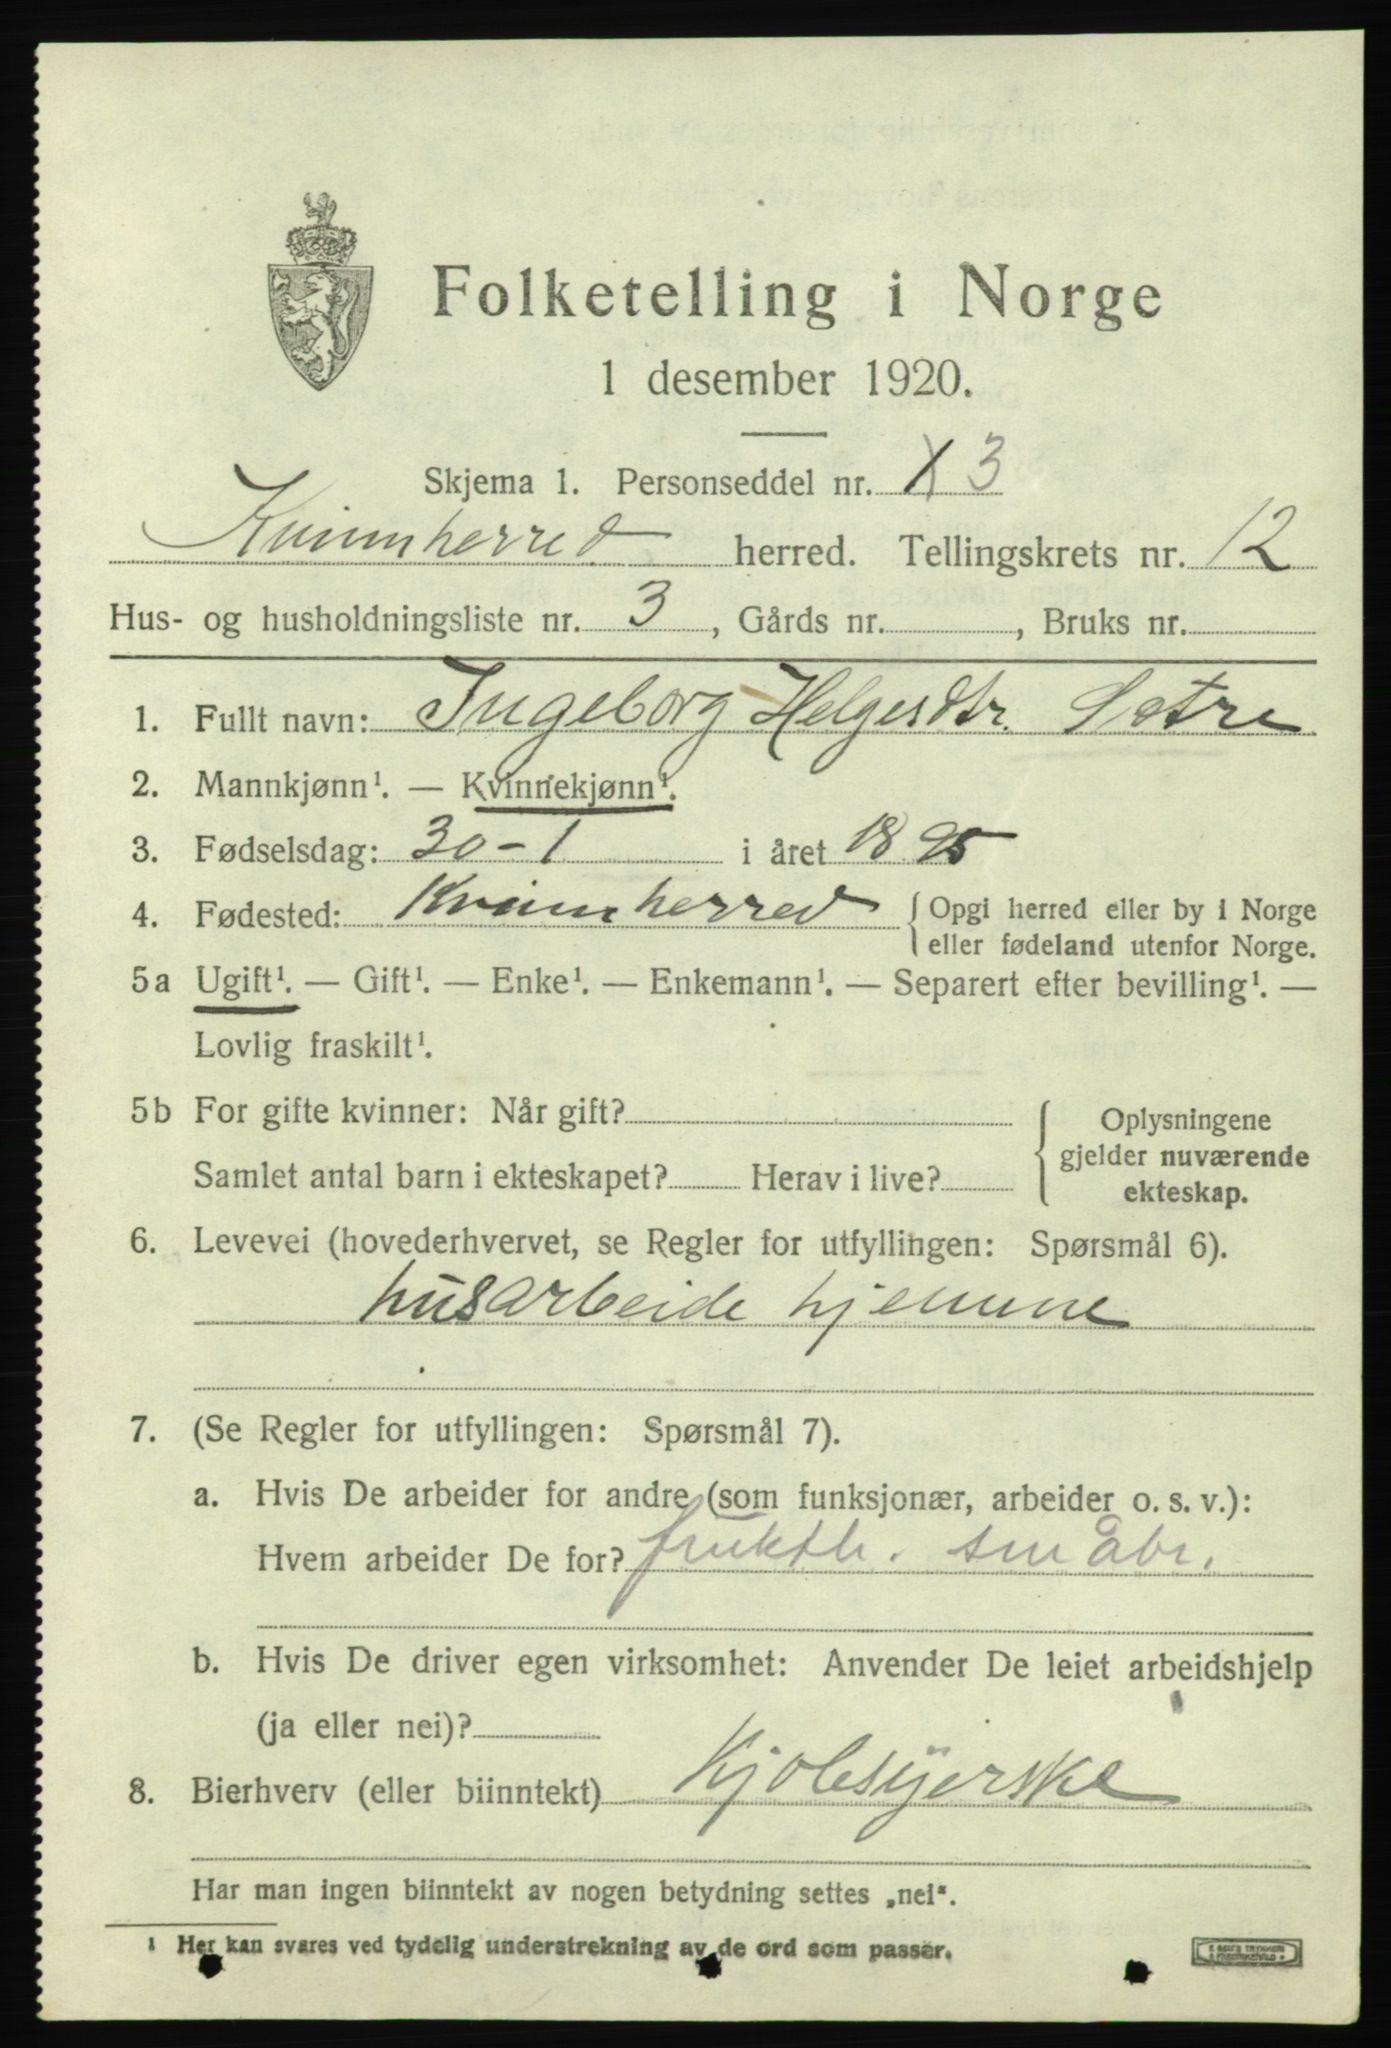 Folketelling i Norge
1 desember 1920.
Skjema 1. Personseddel nr. X 3
Kvinnherred herred. Tellingskrets nr. 12
Hus- og husholdningsliste nr. 3, Gårds nr. , Bruks nr.
1. Fullt navn: Ingeborg Helgesdtr. Sætre
2. Mannkjønn¹. — Kvinnekjønn¹.
3. Fødselsdag: 30-1 i året 1895
4. Fødested: Kvinnherred { Opgi herred eller by i Norge
eller fødeland utenfor Norge.
5a Ugift¹. — Gift¹. — Enke¹. — Enkemann¹. — Separert efter bevilling¹. —
Lovlig fraskilt¹.
5b For gifte kvinner: Når gift?
Samlet antal barn i ekteskapet? Herav i live?
Oplysningene
gjelder nuværende
ekteskap.
6. Levevei (hovederhvervet, se Regler for utfyllingen: Spørsmål 6).
husarbeide hjemme
7. (Se Regler for utfyllingen: Spørsmål 7).
a. Hvis De arbeider for andre (som funksjonær, arbeider o. s. v.):
Hvem arbeider De for? frukth. småbr.
b. Hvis De driver egen virksomhet: Anvender De leiet arbeidshjelp
(ja eller nei)?
8. Bierhverv (eller biinntekt) Kjolesyerske
Har man ingen biinntekt av nogen betydning settes „nei“.
¹ Her kan svares ved tydelig understrekning av de ord som passer.